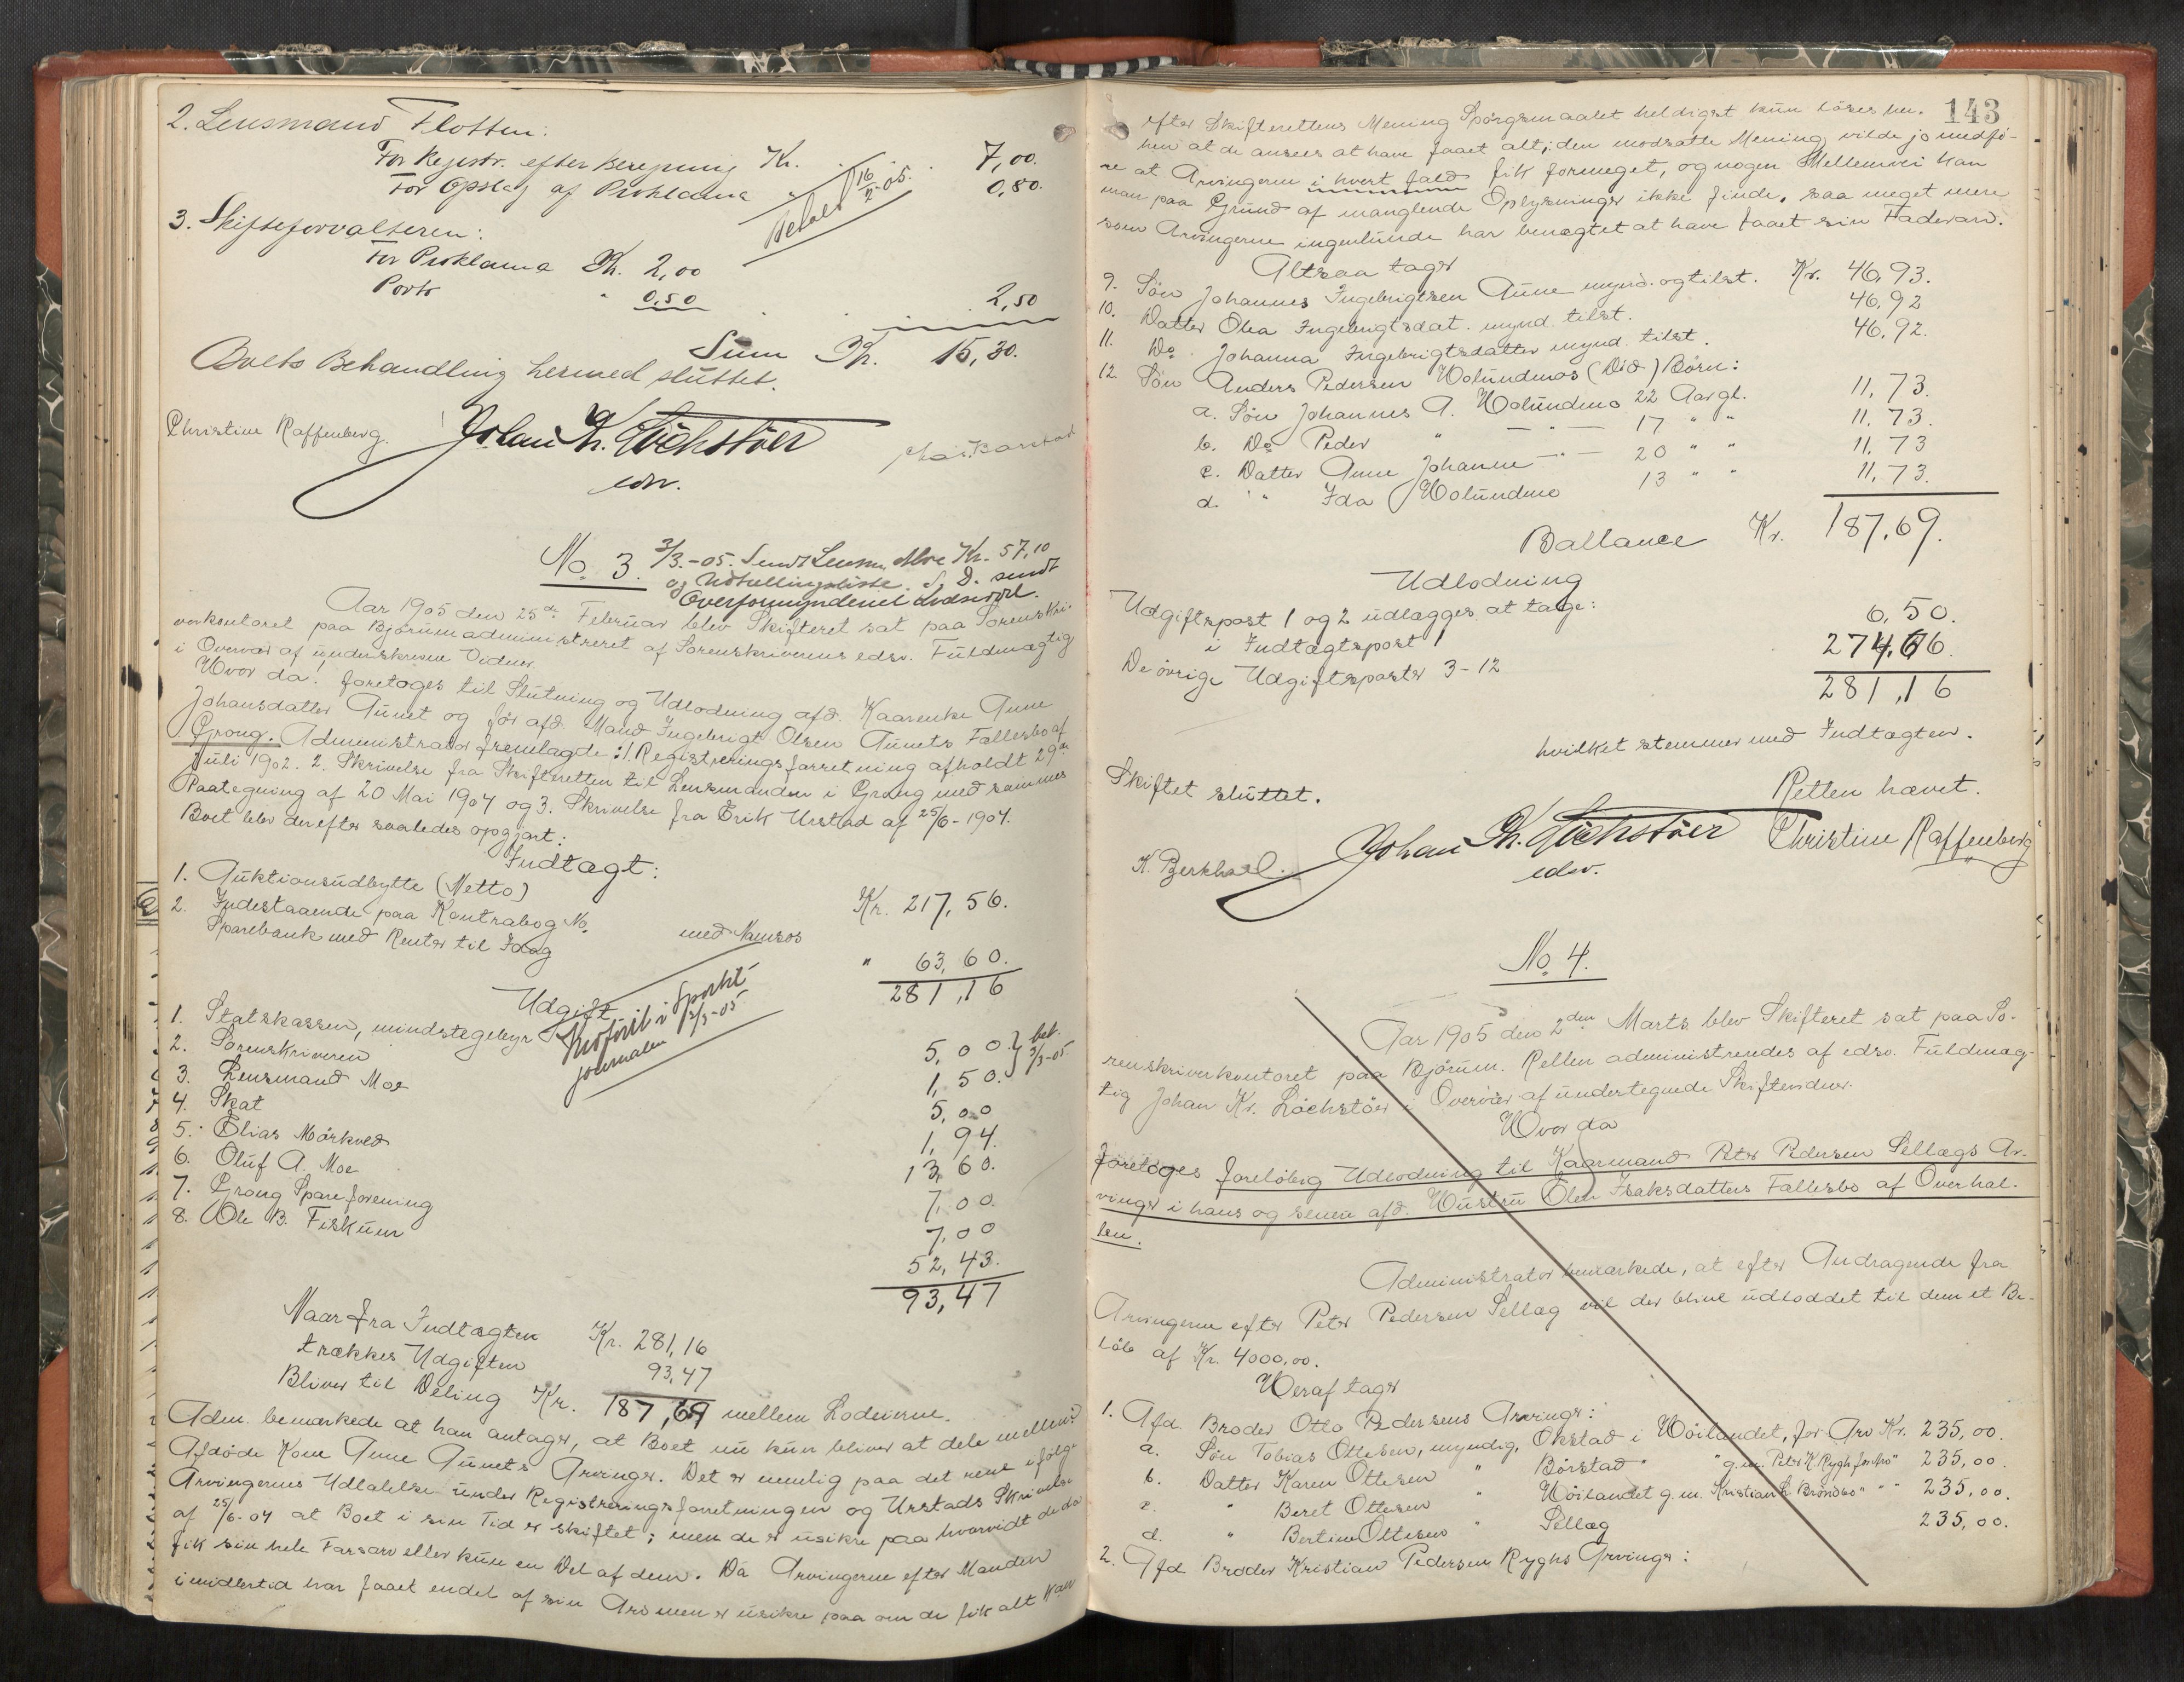 2. Lensmand Flotten:
For Registr. efter Beregning Kr. 7,00.
For Opslag af Proklama " 0,80.
Betalt 16/2-05.
3. Skifteforvalteren:
For Proklama Kr. 2,00
Porto " 0,50
2,50
Sum Kr. 15,30.
Boets Behandling hermed sluttet.
Christine Raffenberg. Johan Kr. Löchstöer
edsv.
No. 3.
3/3.-05. Sendt Lensm. Moe Kr. 57,10
og Udbetalingsliste. S. D. sendt
Overformynderiet Lodseddel.
Aar 1905 den 25de Februar blev Skifteret sat paa Sorenskri-
verkontoret paa Bjørum administreret af Sorenskriverens edsv. Fuldmægtig
i Overvær af underskrevne Vidner.
Hvor da! foretoges til Slutning og Udlodning afd. Kaarenke Anne
Johansdatter Aunet og før afd. Mand Ingebrigt Olsen Aunets Fællesbo af
Grong. Administrator fremlagde: 1. Registreringsforretning afholdt 29de
Juli 1902. 2. Skrivelse fra Skifteretten til Lensmanden i Grong med sammes
Paategning af 20 Mai 1904 og 3. Skrivelse fra Erik Urstad af 25/6-1904.
Boet blev derefter saaledes opgjort:
Indtægt:
1. Auktionsudbytte (Netto) Kr. 217,56.
2. Indestaaende paa Kontrabog No. med Namsos
Sparebank med Renter til Idag " 63,60.
281,16
Udgift
Kvoført i Sporkt-
journalen 3/3-05
1. Statskassen, mindstegebyr 5,00.
2. Sorenskriveren 1,50.
bet. 3/3-05
3. Lensmand Moe 5,00
4. Skat 1,94.
5. Elias Mörkved 13,60.
6. Oluf A. Moe 7,00.
7. Grong Spareforening 7,00
8. Ole B. Fiskum 52,43.
93,47
Naar fra Indtægten Kr. 281,16
trækkes Udgiften 93,47
Bliver til Deling Kr. 187,69 mellem Lodeierne.
Adm. bemærkede at han antager, at Boet nu kun bliver at dele mellem
Afdøde Kone Anne Aunets Arvinger. Det er nemlig paa det rene ifølge
Arvingernes Udtalelse under Registreringsforretningen og Urstads Skrivelse
af 25/6-04 at Boet i sin Tid er skiftet; men de er usikre paa hvorvidt de da
fik sin hele Farsarv eller kun en Del af dem. Da Arvingerne efter Manden
imidlertid har faaet endel af sin Arv men er usikre paa om de fik alt kan
143
efter Skifterettens Mening Spørgsmaalet heldigst kun løses her-
hen at de ansees at have faaet alt; den modsatte Mening vilde jo medfø-
re at Arvingerne i hvert fald fik formeget, og nogen Mellemvei kan
man paa Grund af manglende Oplysninger ikke finde, saa meget mere
som Arvingerne ingenlunde har benægtet at have faaet sin Fadersarv.
Altsaa tager
9. Søn Johannes Ingebrigtsen Aune mynd. og tilst. Kr. 46,93.
10. Datter Olea Ingebrigtsdat. mynd. tilst. 46,92
11. Do Johanna Ingebrigtsdatter mynd. tilst. 46,92.
12 Søn Anders Pedersen Holundmos (Død) Børn:
a. Søn Johannes A. Holundmo 22 Aar gl. 11,73.
b. Do Peder " — " — 17 " " 11,73.
c. Datter Anne Johanne — " — 20 " " 11,73
d. " Ida Holundmo 13 " " 11,73.
Ballance Kr. 187,69.
Udlodning
Udgiftspost 1 og 2 udlægges at tage:
i Indtægtspost 1 6,50.
De øvrige Udgiftsposter 3-12 274,66.
281,16
hvilket stemmer med Indtægten.
Skiftet sluttet.
Retten hævet.
K. Berkhall. Johan Kr. Löchstöer Christine Raffenberg
edsv.
No. 4.
Aar 1905 den 2den Marts blev Skifteret sat paa So-
renskriverkontoret paa Bjørum. Retten administreredes af edsv. Fuldmæg-
tig Johan Kr. Löchstöer i Overvær af undertegnede Skiftevidner.
Hvor da
foretoges foreløbig Udlodning til Kaarmand Peter Pedersen Sellægs Ar-
vinger i hans og senere afd. Hustru Elen Isaksdatters Fællesbo af Overhal-
len.
Administrator bemærkede, at efter Andragende fra
Arvingerne efter Peter Pedersen Sellæg vil der blive udloddet til dem et Be-
løb af Kr. 4000,00.
Heraf tager
1. Afd. Broder Otto Pedersens Arvinger:
a. Søn Tobias Ottesen, myndig, Okstad i Höilandet, for Arv Kr. 235,00.
b. Datter Karen Ottesen " Börstad " " g.m. Peter K. Rygh for Arv " 235,00.
c. " Beret Ottesen " Höilandet g.m. Kristian L. Brönsbo " " " 235,00.
d. " Bertine Ottesen " Sellæg 235,00.
2. Afd. Broder Kristian Pedersen Ryghs Arvinger: